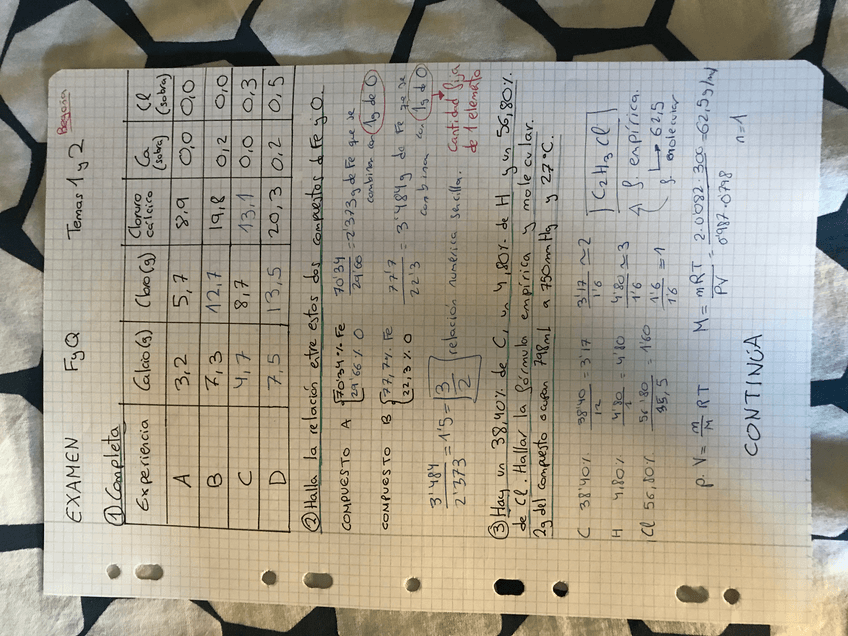 EXAMEN FyQ Temas 1 y 2 Begoña
① Completa
Experiencia Calcio(g) Cloro(g) Cloruro cálcico Ca (sobra) Cl (sobra)
A 3,2 5,7 8,9 0,0 0,0
B 7,3 12,7 19,8 0,2 0,0
C 4,7 8,7 13,1 0,0 0,3
D 7,5 13,5 20,3 0,2 0,5
② Halla la relación entre estos dos compuestos de Fe y O.
COMPUESTO A { 70'34 % Fe 29'66 % O 70'34/29'66 = 2'373 g de Fe que se combina con 1g de O
COMPUESTO B { 77,7 % Fe 22,3 % O 77'7/22'3 = 3'484 g de Fe que se combina con 1g de O
3'484/2'373 = 1'5 = 3/2 relación numérica sencilla. Cantidad fija de 1 elemento
③ Hay un 38,40% de C, un 4,80% de H y un 56,80%
de Cl. Hallar la fórmula empírica y molecular.
2g del compuesto ocupan 798ml a 750mmHg y 27°C.
C 38'40% 38'40/12 = 3'17 3'17/1'6 ≃ 2
H 4,80% 4'80/1 = 4'80 4'80/1'6 ≃ 3
Cl 56,80% 56'80/35,5 = 1'60 1'6/1'6 = 1
C2H3Cl
f. empírica.
62,5
f. molecular
P·V = m/M RT M = mRT/PV = 2·0'082·300/0'987·0'798 = 62,5g/mol
n = 1
CONTINÚA